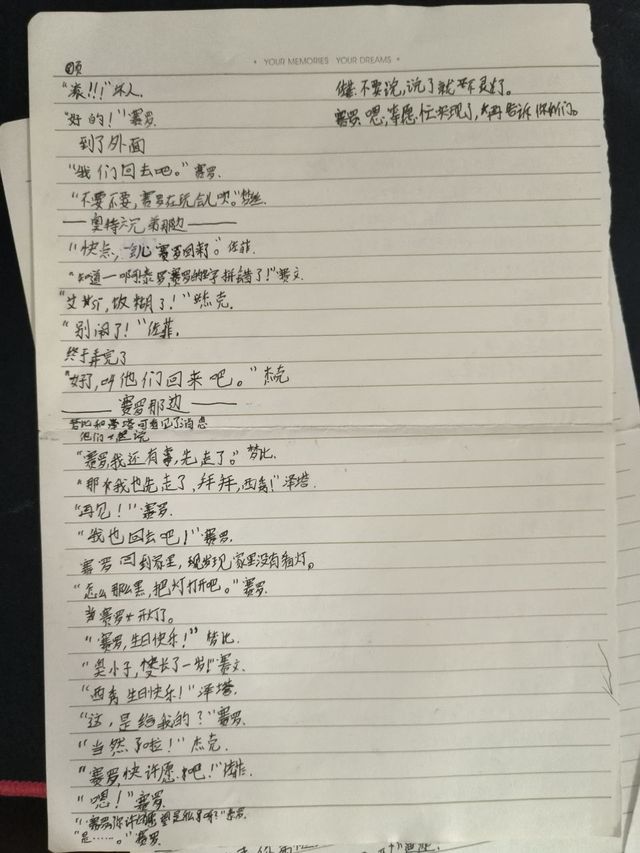 • YOUR MEMORIES YOUR DREAMS •
"滚!!!"坏人.
"好的!"赛罗.
到了外面
"我们回去吧。"赛罗.
"不要不要,赛罗在玩会儿呗。"梦比.
——奥特六兄弟那边——
"快点,赛罗回来了。"佐菲.
"知道"赛罗的字拼错了!"赛文.
"艾斯,坡糊了!"杰克.
"别闹了!"佐菲.
终于弄完了
"好了,叫他们回来吧。"杰克
——赛罗那边——
梦比和泽塔可看见了消息
他们一起说
"赛罗,我还有事,先走了。"梦比.
"那我也先走了,拜拜,西秀!"泽塔.
"再见!"赛罗.
"我也回去吧!"赛罗.
赛罗回到家里,发现家里没有开灯。
"怎么那么黑,把灯打开吧。"赛罗.
当赛罗开灯了。
"赛罗,生日快乐!"梦比.
"臭小子,又长了一岁!"赛文.
"西秀生日快乐!"泽塔.
"这,是给我的?"赛罗.
"当然了啦!"杰克.
"赛罗,快许愿吧!"佐菲.
"嗯!"赛罗.
"赛罗你许的愿望是什么啊?"泰罗
"是……。"赛罗.
佐菲:不要说,说了就不灵了。
赛罗:嗯,等愿望实现了,再告诉你们。